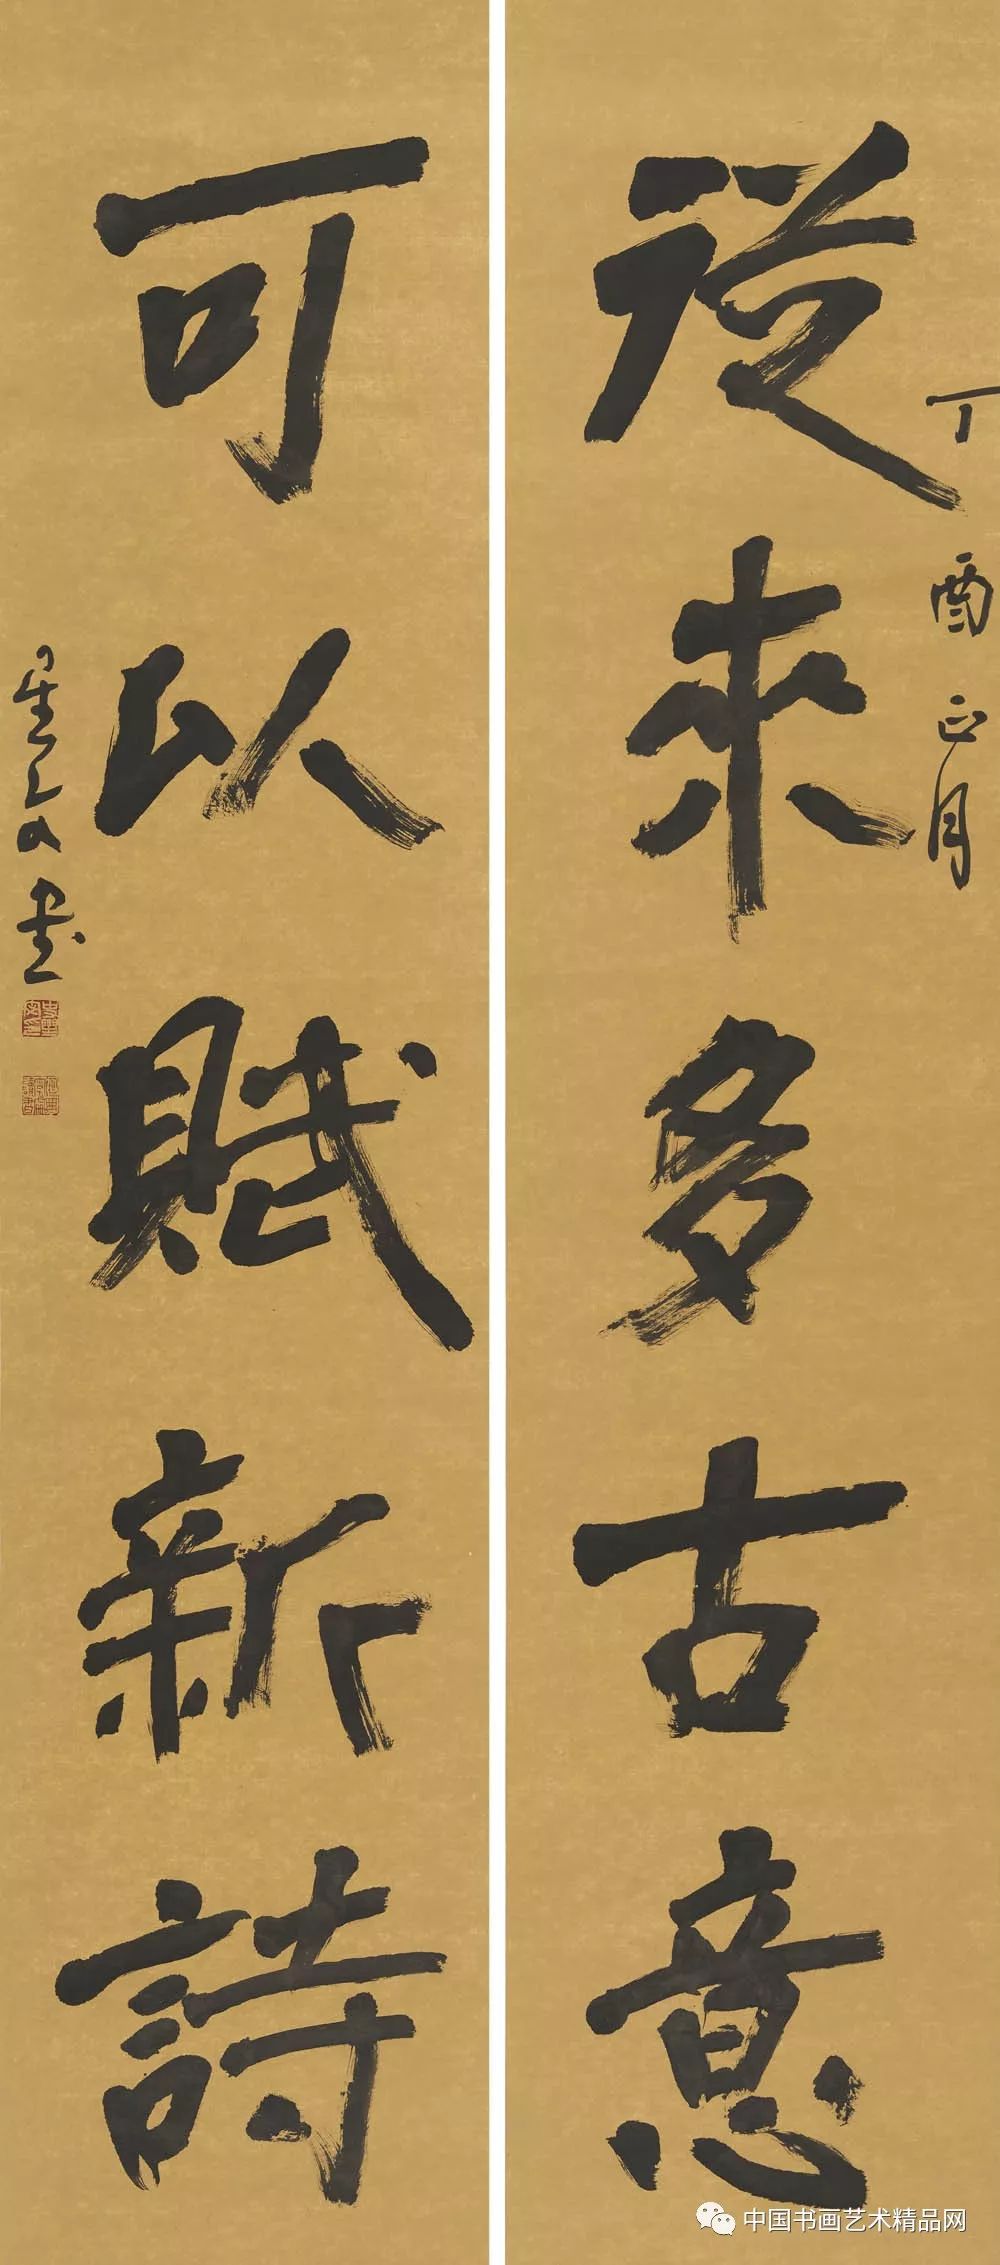 丁酉正月
從來多古意
可以賦新詩
星文書
中国书画艺术精品网